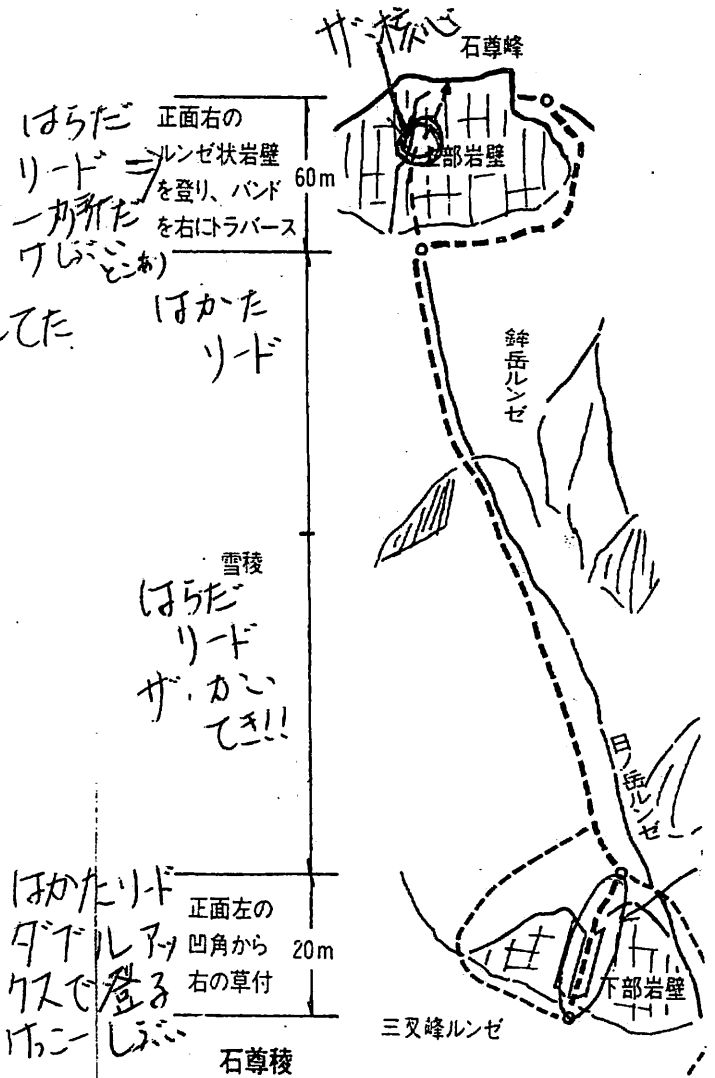 ザ・核心
石尊峰
はらだ
リード⇒
一カ所だ
けしぶい
とこあり
正面右の
ルンゼ状岩壁
を登り、バンド
を右にトラバース
60m
上部岩壁
してた
はかた
リード
鉾岳ルンゼ
雪稜
はらだ
リード
ザ・かい
てき!!
日ノ岳ルンゼ
はかたリード
ダブルアッ
クスで登る
けっこーしぶい
正面左の
凹角から
右の草付
20m
下部岩壁
三叉峰ルンゼ
石尊稜